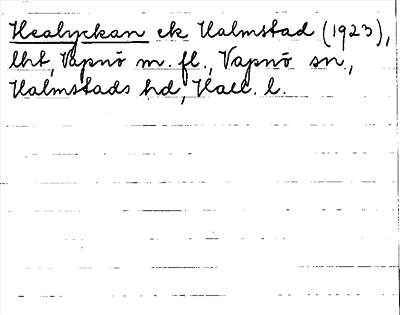 Healyckan ek Halmstad (1923),
lht, Vapnö m. fl., Vapnö sn,
Halmstads hd, Hall. l.